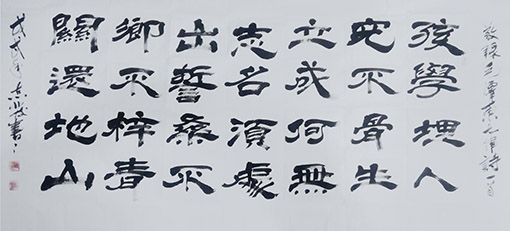 敬録毛澤東七律詩一首
孩兒立志出鄉關
學不成名誓不還
埋骨何須桑梓地
人生無處不青山
戊戌年書